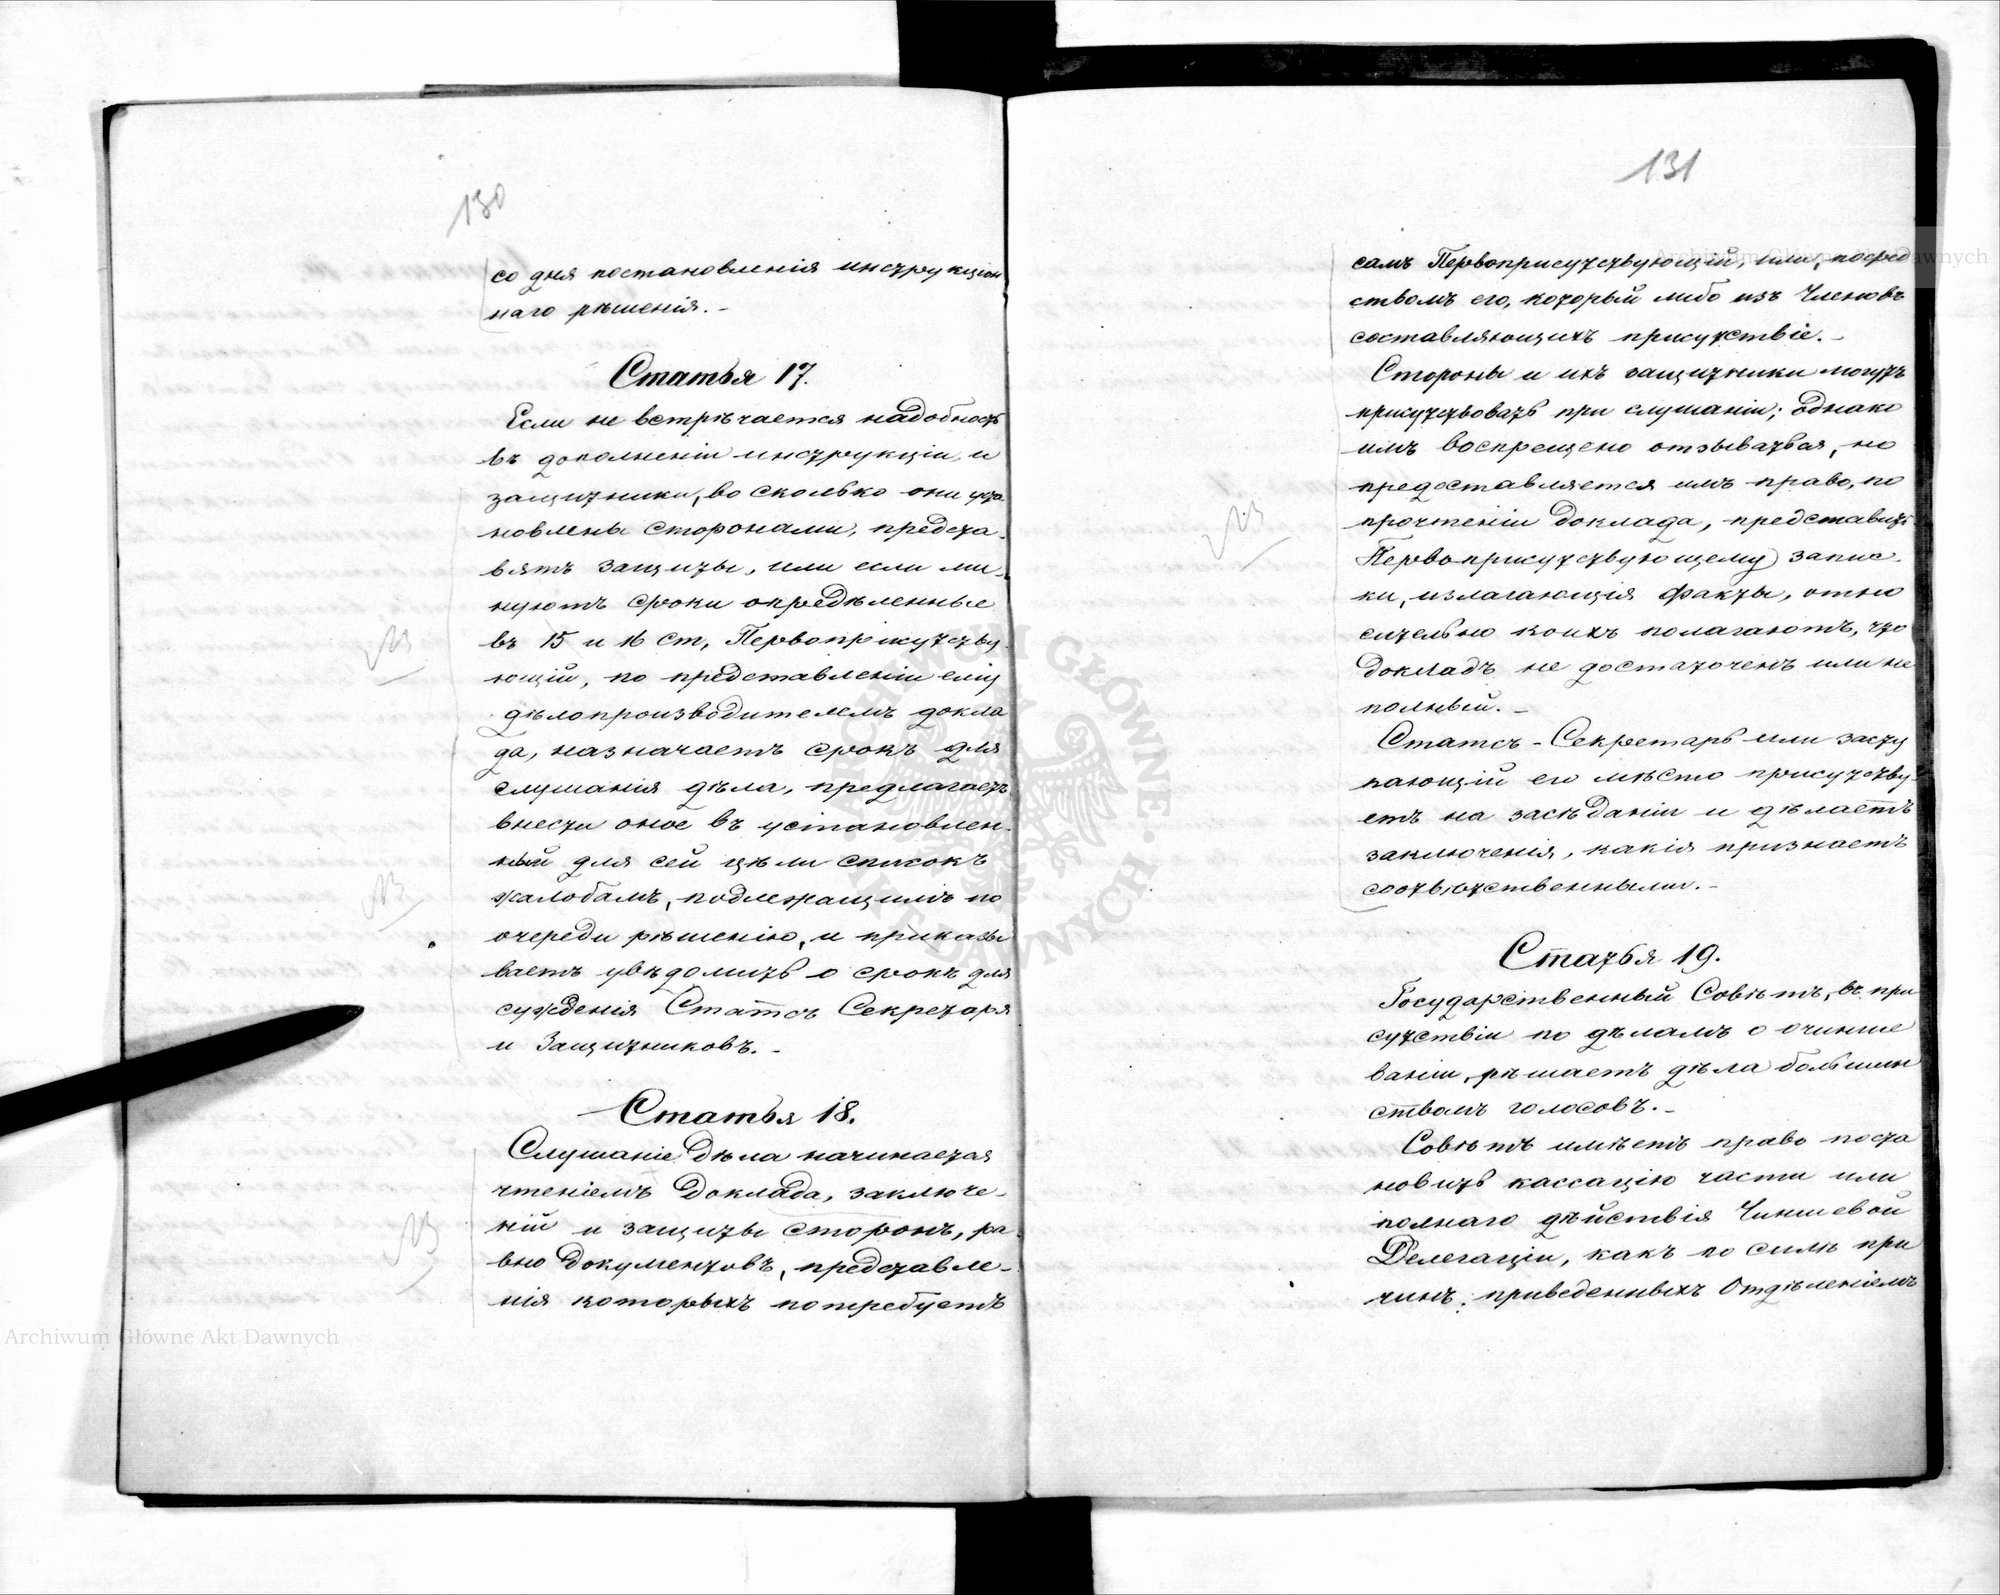 130
со дня постановленія инструкціон
наго рѣшенія. –
Статья 17.
Если не встрѣчается надобность
въ дополненіи инструкціи, и
защитники, во сколько они уста
новлены сторонами, предста-
вятъ защиты, или если ми-
нуютъ сроки опредѣленные
въ 15 и 16 ст, Первоприсутству-
ющій, по представленіи ему
дѣлопроизводителемъ докла
да, назначаетъ срокъ для
слушанія дѣла, предлагаетъ
внести оное въ установлен-
ный для сей цѣли списокъ
жалобамъ, подлежащимъ по
очереди рѣшенію, и приказы
ваетъ увѣдомить о срокѣ для
сужденія Статсъ Секретаря
и Защитниковъ. –
Статья 18.
Слушаніе дѣла начинается
чтеніемъ доклада, заключе-
ній и защиты сторонъ, ра-
вно документовъ, представле-
нія которыхъ потребуетъ
131
самъ Первоприсутствующій, или, посред
ствомъ его, который либо изъ Членовъ
составляющихъ присутствіе. –
Стороны и ихъ защитники могутъ
присутствовать при слушаніи; однако
имъ воспрещено отзываться, но
предоставляется имъ право, по
прочтеніи доклада, представить
Первоприсутствующему запис-
ки, излагающія факты, отно
сительно коихъ полагаютъ, что
докладъ не достаточенъ или не
полный. –
Статсъ-Секретарь или засту
пающій его мѣсто присутству-
етъ на засѣданіи и дѣлаетъ
заключенія, какія признаетъ
соотвѣтственными. –
Статья 19.
Государственный Совѣтъ, въ при
сутствіи по дѣламъ о очинше
ваніи, рѣшаетъ дѣла большин
ствомъ голосовъ. –
Совѣтъ имѣетъ право поста
новить кассацію части или
полнаго дѣйствія Чиншевой
Делегаціи, какъ по силѣ при
чинъ, приведенныхъ Отдѣленіемъ
Archiwum Główne Akt Dawnych